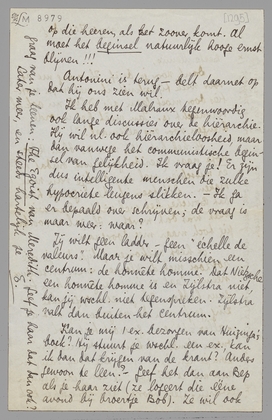 M 8979
[005]
op die heeren, als het zoover komt. Al
moet het beginsel natuurlijk hooge ernst
blijven!!!
Antonini is terug — belt daarnet op
dat hij ons zien wil.
Ik heb met Malraux tegenwoordig
ook lange discussies over de hiërarchie.
Hij wil nl. ook hiërarchieloosheid, maar
dan vanwege het communistische begin-
sel van gelijkheid. Ik vraag je! Er zijn
dus intelligente menschen die zulke
hypocriete leugens slikken. — Ik ga
er bepaald over schrijven; de vraag is
maar meer: waar?
Jij wilt geen ladder — geen échelle de
valeurs? Maar je wilt misschien een
centrum: de honnête homme. Dat Nietzsche
een honnête homme is en Zijlstra niet
kan jij wschl. niet tegenspreken. Zijlstra
valt dan buiten het centrum.
Kan je mij 1 ex. bezorgen van Huizinga's
boek? Hij stuurt je wschl. een ex.; kan
ik dan dat krijgen van de krant? Anders
gewoon te leen? Geef het dan aan Bep
als je haar ziet (ze logeert die eene
avond bij broertje Bob). Ze wil ook
graag van je leenen: The Egoist van Meredith. Geef je haar dat dan ook?
Ander meer, en steeds hartelijk je E.